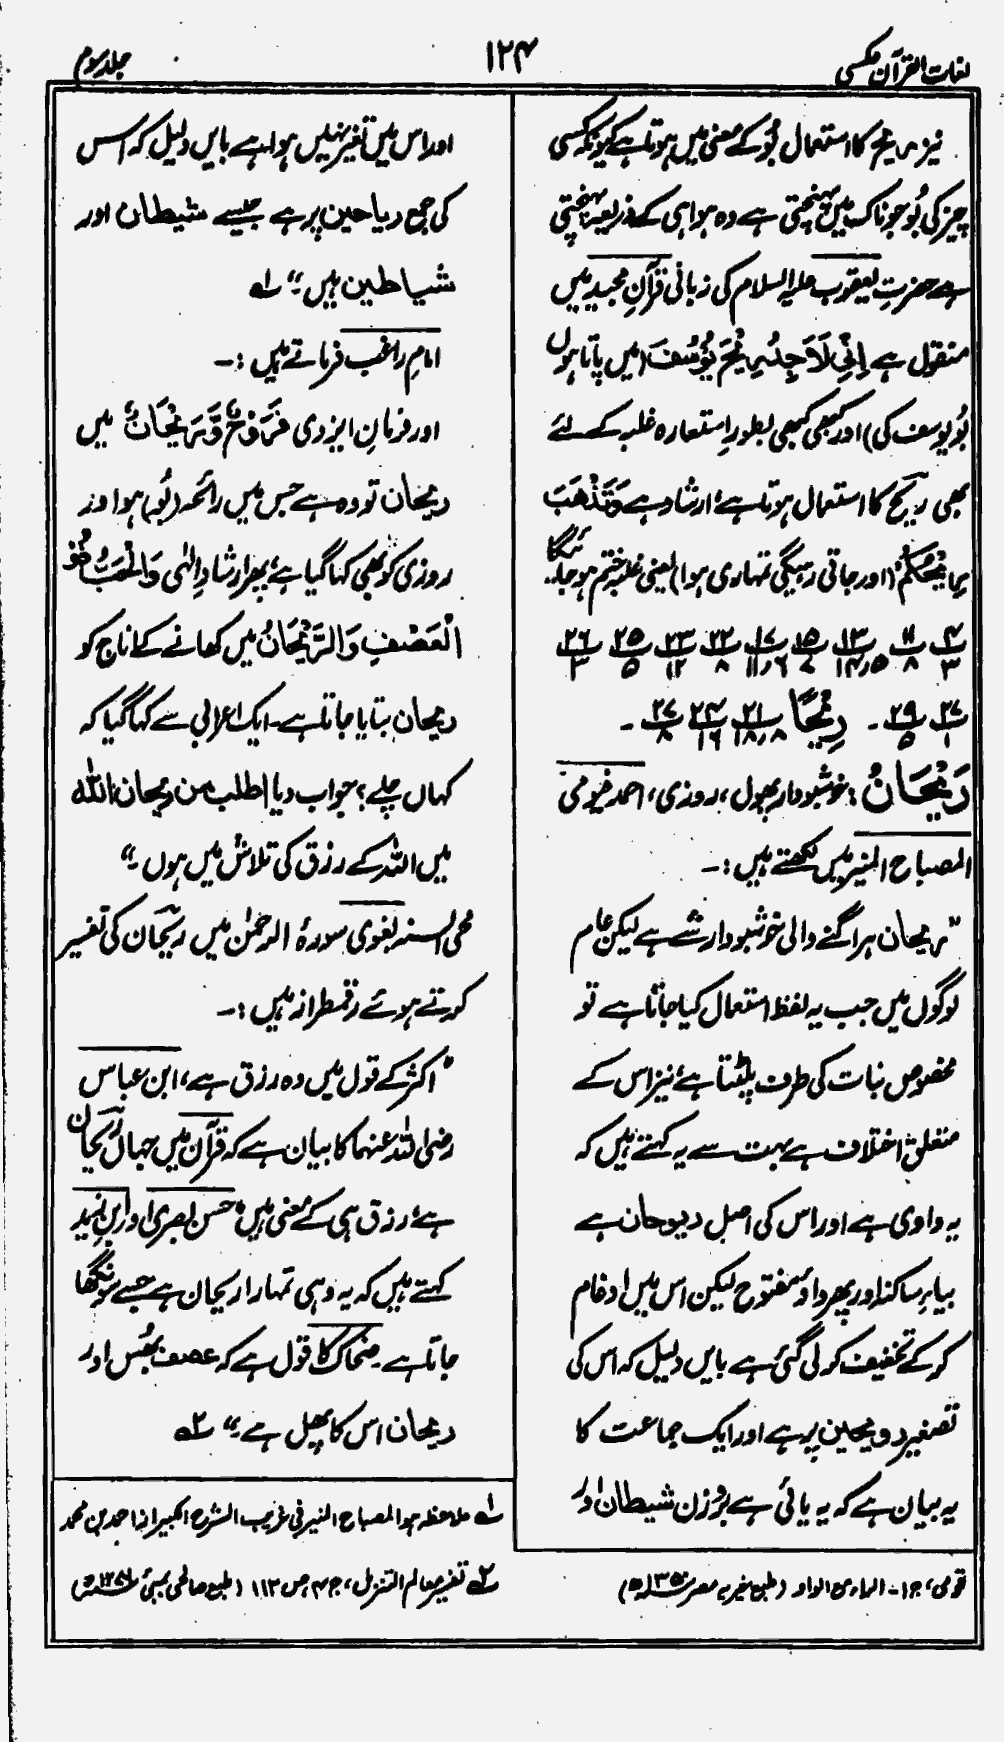 لغات القرآن عکسی
۱۲۴
جلد سوم
نیز ریح کا استعمال بُو کے معنی میں ہوتا ہے کیونکہ کسی
چیز کی بُو جو ناک میں پہنچتی ہے وہ ہوا ہی کے ذریعہ پہنچتی
ہے حضرتِ یعقوب علیہ السلام کی زبانی قرآنِ مجید میں
منقول ہے اِنِّی لَاَجِدُ رِیْحَ یُوْسُفَ (میں پاتا ہوں
بُو یوسف کی) اور کبھی کبھی بطورِ استعارہ غلبہ کے لئے
بھی ریح کا استعمال ہوتا ہے ارشاد ہے وَتَذْهَبَ
رِیْحُکُمْ (اور جاتی رہیگی تمہاری ہوا) یعنی غلبہ ختم ہو جائیگا
۴/۳ ۱۱/۸ ۱۳/۱۴،۵ ۱۵/۷ ۱۷/۱۱،۶ ۲۲/۸ ۲۳/۱۲ ۲۵/۵ ۲۶/۳
۲۷/۱ ۲۹/۵ ۔ رِیْحًا ۲۱/۱۸،۸ ۲۴/۱۶ ۲۷/۸ ۔
رَیْحَانُ : خوشبودار پھول، روزی، احمد فیومی
المصباح المنیر میں لکھتے ہیں :۔
”ریحان ہر اگنے والی خوشبودار شے ہے لیکن عام
لوگوں میں جب یہ لفظ استعمال کیا جاتا ہے تو
مخصوص نبات کی طرف پلٹتا ہے نیز اس کے
متعلق اختلاف ہے بہت سے یہ کہتے ہیں کہ
یہ واوی ہے اور اس کی اصل ریوحان ہے
بیاءِ ساکنہ اور پھر واؤ مفتوح لیکن اس میں ادغام
کرکے تخفیف کر لی گئی ہے بایں دلیل کہ اس کی
تصغیر رویحین پر ہے اور ایک جماعت کا
یہ بیان ہے کہ یہ یائی ہے بروزن شیطان اور
اور اس میں تغیر نہیں ہوا ہے بایں دلیل کہ اس
کی جمع ریاحین پر ہے جیسے شیطان اور
شیاطین ہیں“ ۱؎
امامِ راغب فرماتے ہیں :۔
اور فرمانِ ایزدی فَرَوْحٌ وَّرَیْحَانٌ میں
ریحان تو وہ ہے جس میں رائحہ (بُو) ہو اور
روزی کو بھی کہا گیا ہے پھر ارشادِ الٰہی وَالْحَبُّ ذُو
الْعَصْفِ وَالرَّیْحَانُ میں کھانے کے اناج کو
ریحان بتایا جاتا ہے۔ ایک اعرابی سے کہا گیا کہ
کہاں چلے؟ جواب دیا اطلب من ریحان اللہ
میں اللہ کے رزق کی تلاش میں ہوں“
محی السنہ بغوی سورۂ الرحمٰن میں ریحان کی تفسیر
کرتے ہوئے رقمطراز ہیں :۔
”اکثر کے قول میں وہ رزق ہے، ابن عباس
رضی اللہ عنہما کا بیان ہے کہ قرآن میں جہاں ریحان
ہے رزق ہی کے معنی ہیں، حسن بصری اور ابن زید
کہتے ہیں کہ یہ وہی تمہارا ریحان ہے جسے سونگھا
جاتا ہے۔ ضحاک کا قول ہے کہ عصف بھُس اور
ریحان اس کا پھل ہے“ ۲؎
۱؎ ملاحظہ ہو المصباح المنیر فی غریب الشرح الکبیر از احمد بن محمد
فیومی، ج ۱۔ الراء مع الواو (طبع خیریہ مصر
۲؎ تفسیر معالم التنزیل، ج ۴، ص ۱۱۳ (طبع صالحی بمبئی